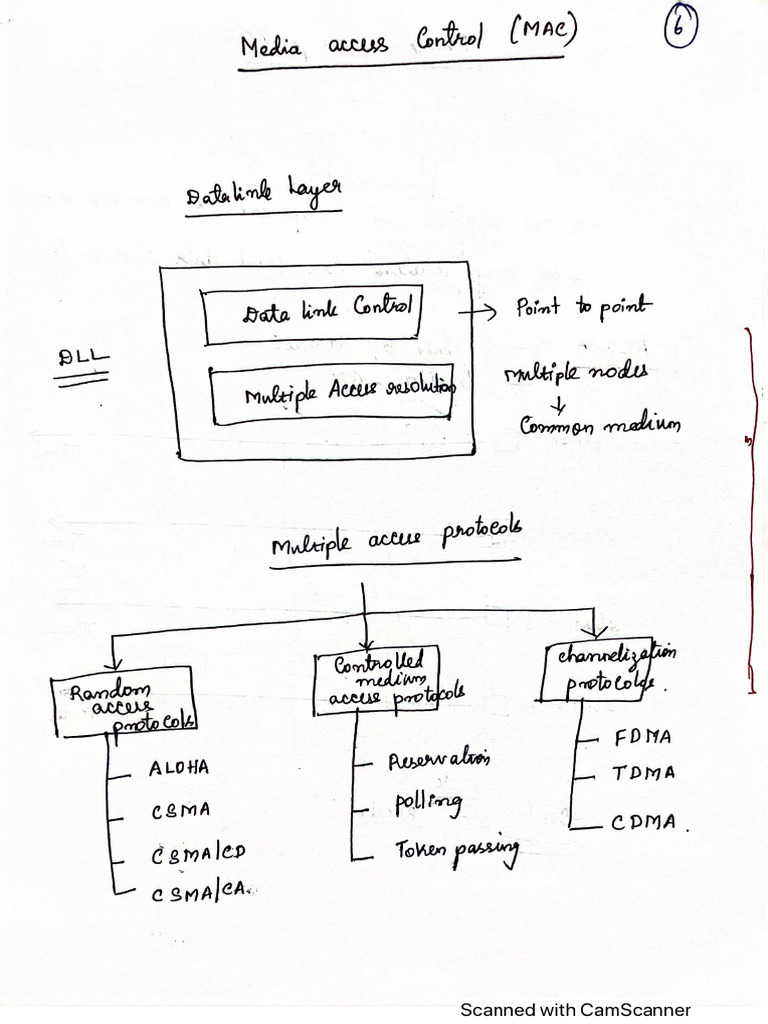 Media access Control (MAC)
6
Datalink Layer
Data link Control
Point to point
DLL
Multiple Access resolution
Multiple nodes
Common medium
Multiple access protocols
Random
access
protocols
Controlled
medium
access protocols
channelization
protocols.
ALOHA
CSMA
CSMA/CD
CSMA/CA.
Reservation
polling
Token passing
FDMA
TDMA
CDMA.
Scanned with CamScanner